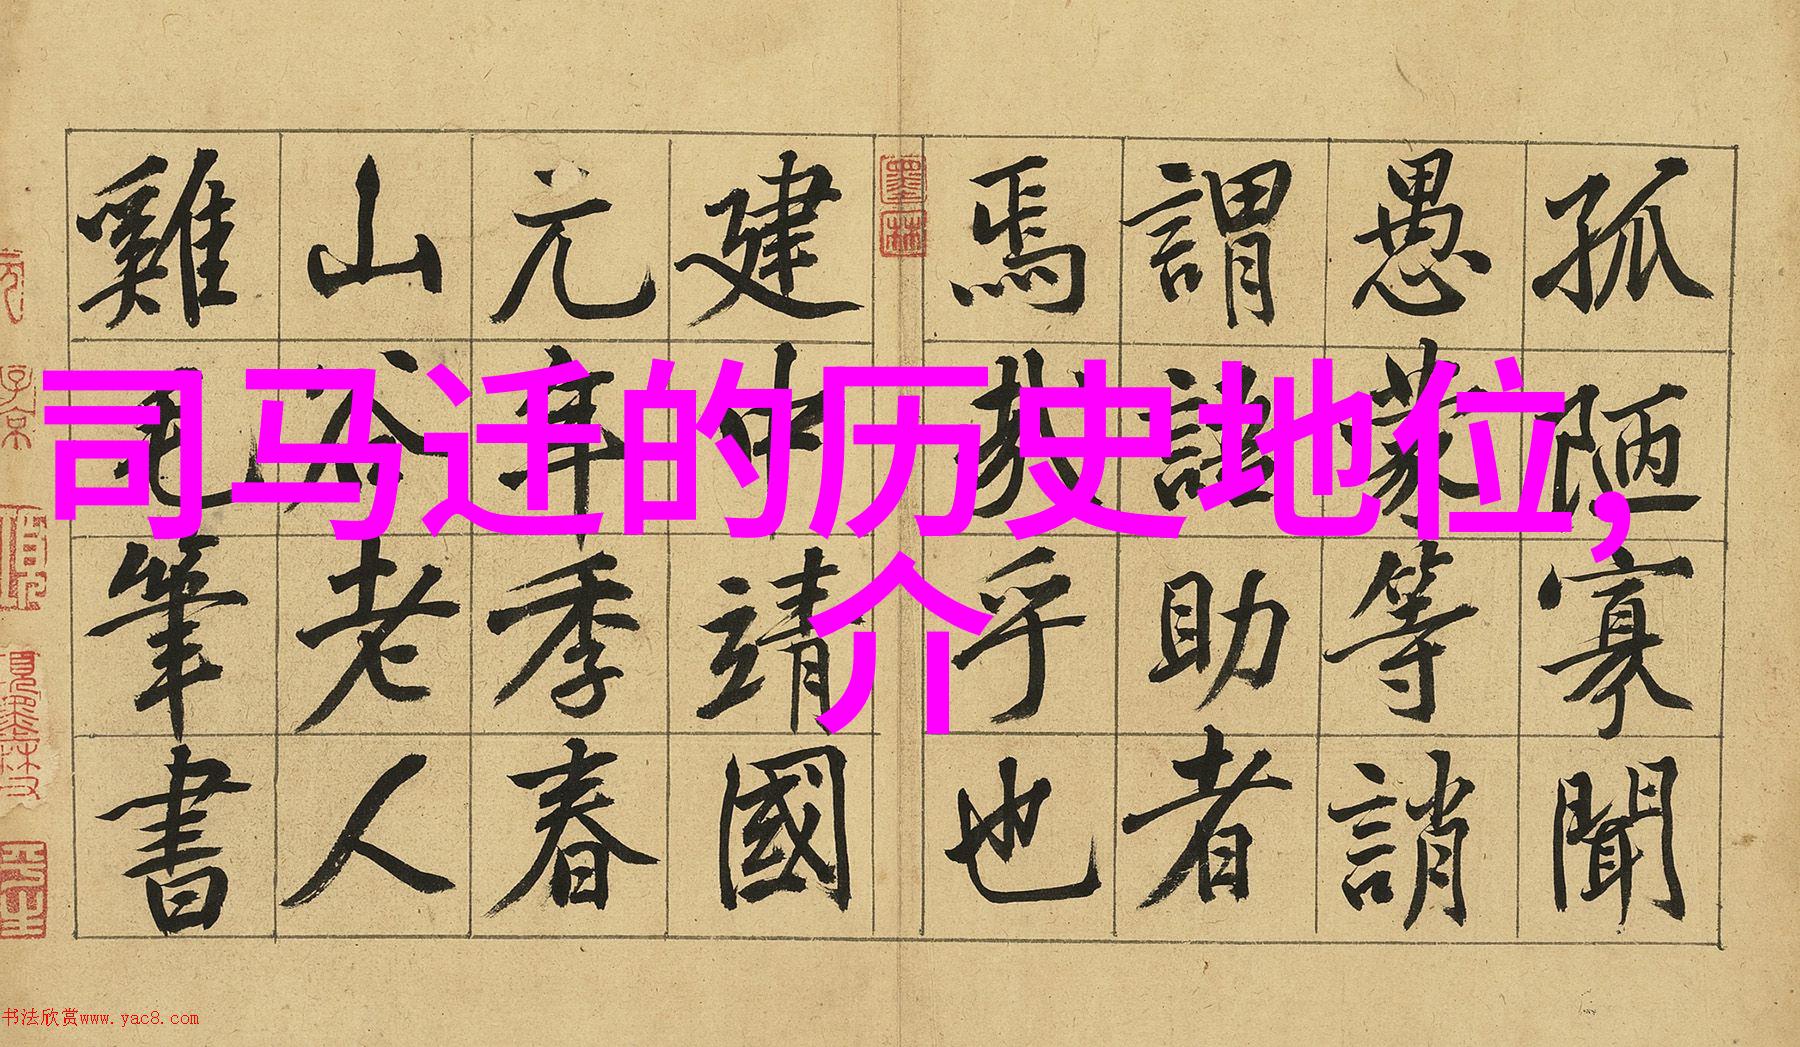 司马迁的历史地位,
介
孤陋寡聞
愚蒙等誚
謂語助者
焉哉乎也
建中靖國
元年季春
山谷老人
雞毛筆書
墨林
书法欣赏www.yac8.com